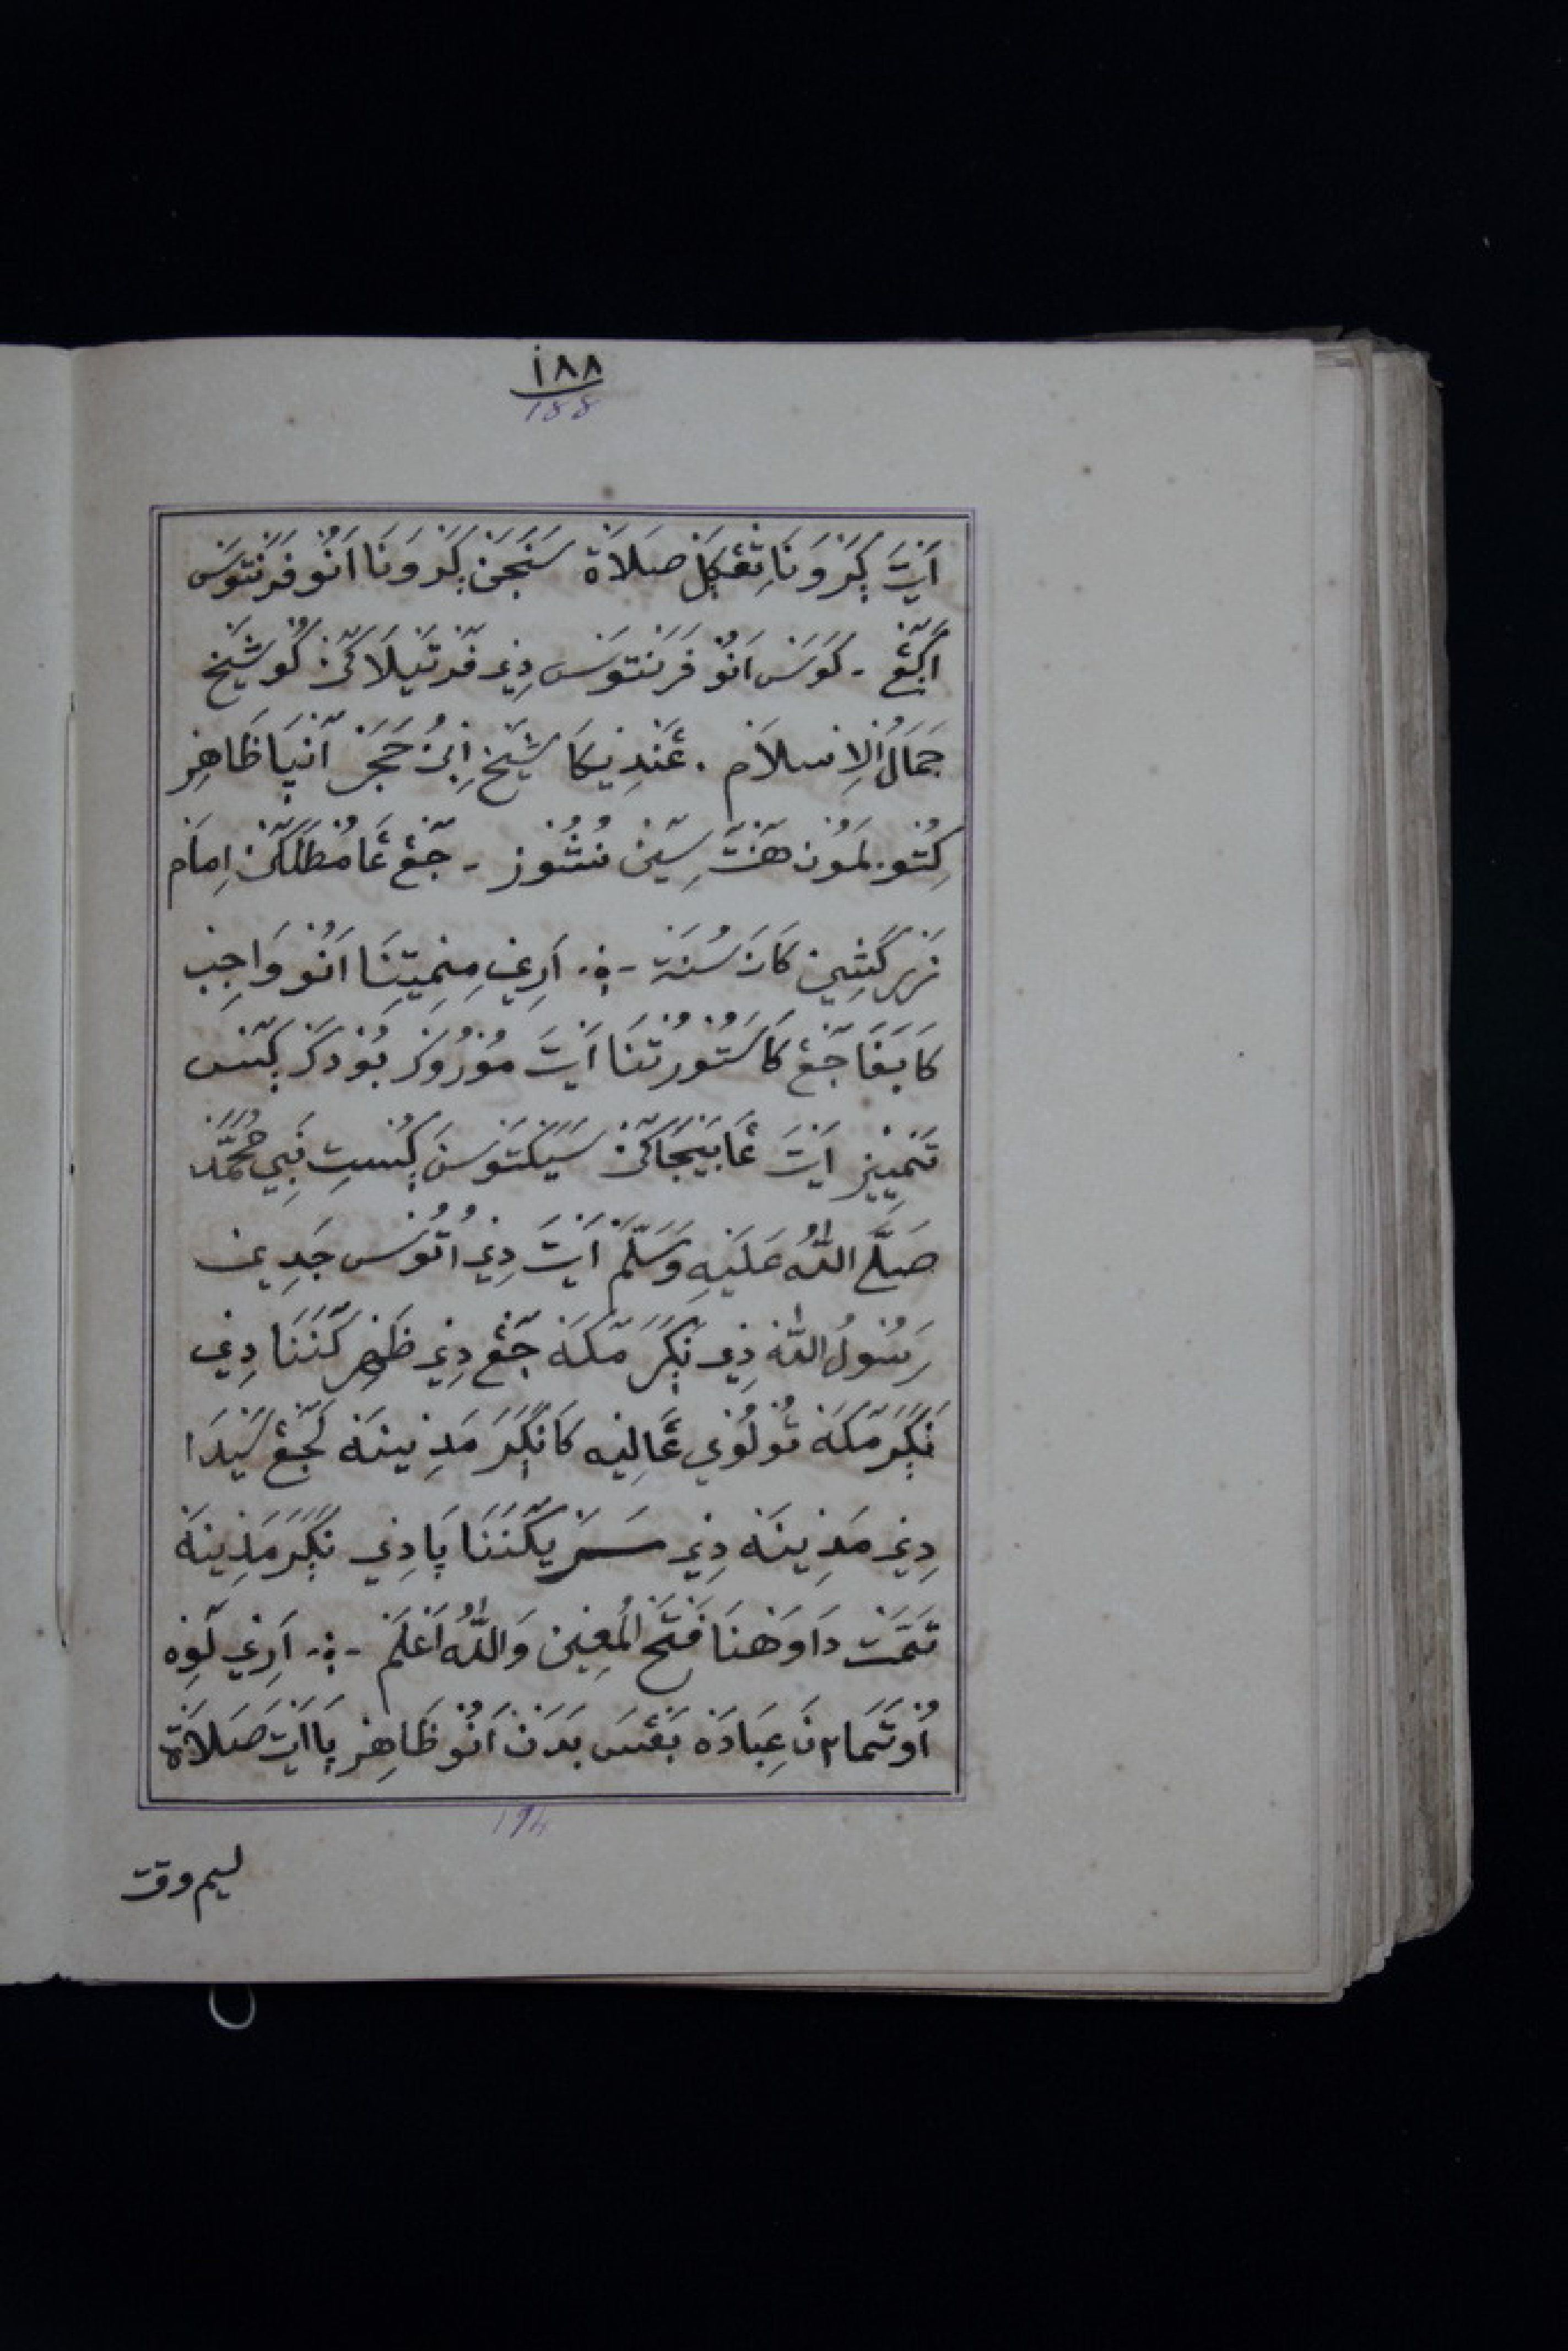 ١٨٨
188
اَيْتَ كَرَوَنَا تِڠْكَلْ صَلَاةْ سَنْجَنْ كَرَوَنَا اَنُو فَرَنْتَوسَ
اَكّڠْ - كَوَسَ اَنُو فَرَنْتَوسَ دِيْ فَرْتَيلَاكَنْ كُو شَيْخْ
جَمَالُ الْاِسْلَامْ . عَنْدِيكَا شَيْخْ اِبْنُ حَجَرْ اَنْيَا ظَاهِرْ
كِتُو. لَمُونْ هَنْتَ سِيَنْ نُشُوزْ - جَڠْ عَامُطْلَكَنْ اِمَامْ
زَرْكَشِيْ كَانَ سُنَةْ - اَرِيْ مِنِمِيتِنَا اَنُو وَاجِبْ
كَابَفَا جَڠْ كَا سَتُورُتْنَا اَيْتَ مُوْرُوكَرْ بُودَكْرَكَنَسْ
تَمْيِيزْ اَيْتَ عَابَيْجَاكَنْ سَيَكْتَوسَنَ كُسْتِ نَبِي مُحَمَّدْ
صَلَّى اللهُ عَلَيْهِ وَسَلَّمَ اَيْتَ دِيْ اُتُوسْ جَدِي
رَسُولُ اللهْ دِيْ نَكَرَ مَكَةْ جَڠْ دِيْ ظَهِرْكَنَنَا دِيْ
نَكَرَ مَكَةْ تُولُوْيْ عَالِيهْ كَا نَكَرَ مَدِينَةْ لَجَڠْ سَيْدَا
دِيْ مَدِينَةْ دِيْ سَرَيكَنَنَا پَادِيْ نَكَرَ مَدِينَةْ
تَمَتْ دَاوَهْنَا فَتْحُ الْمُعِينْ وَاللهُ اَعْلَمْ - اَرِيْ لَوِهْ
اُوتَمَا٢نَ عِبَادَةْ بَڠْسَ بَدَنْ اَنُو ظَاهِرْ پَا اَيْتَ صَلَاةْ
194
ليم وقت